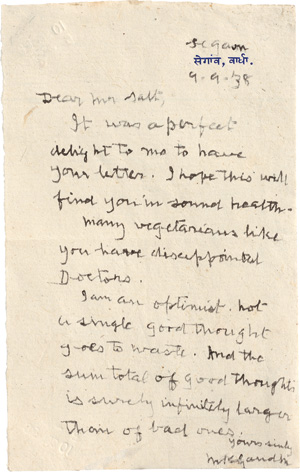 Segaon
सेगांव, वर्धा.
9-9-'38
Dear Mr Salt,
It was a perfect
delight to me to have
your letter. I hope this will
find you in sound health.
Many vegetarians like
you have disappointed
Doctors.
I am an optimist. Not
a single good thought
goes to waste. And the
sum total of good thoughts
is surely infinitely larger
than of bad ones.
Yours sinly
MKGandhi